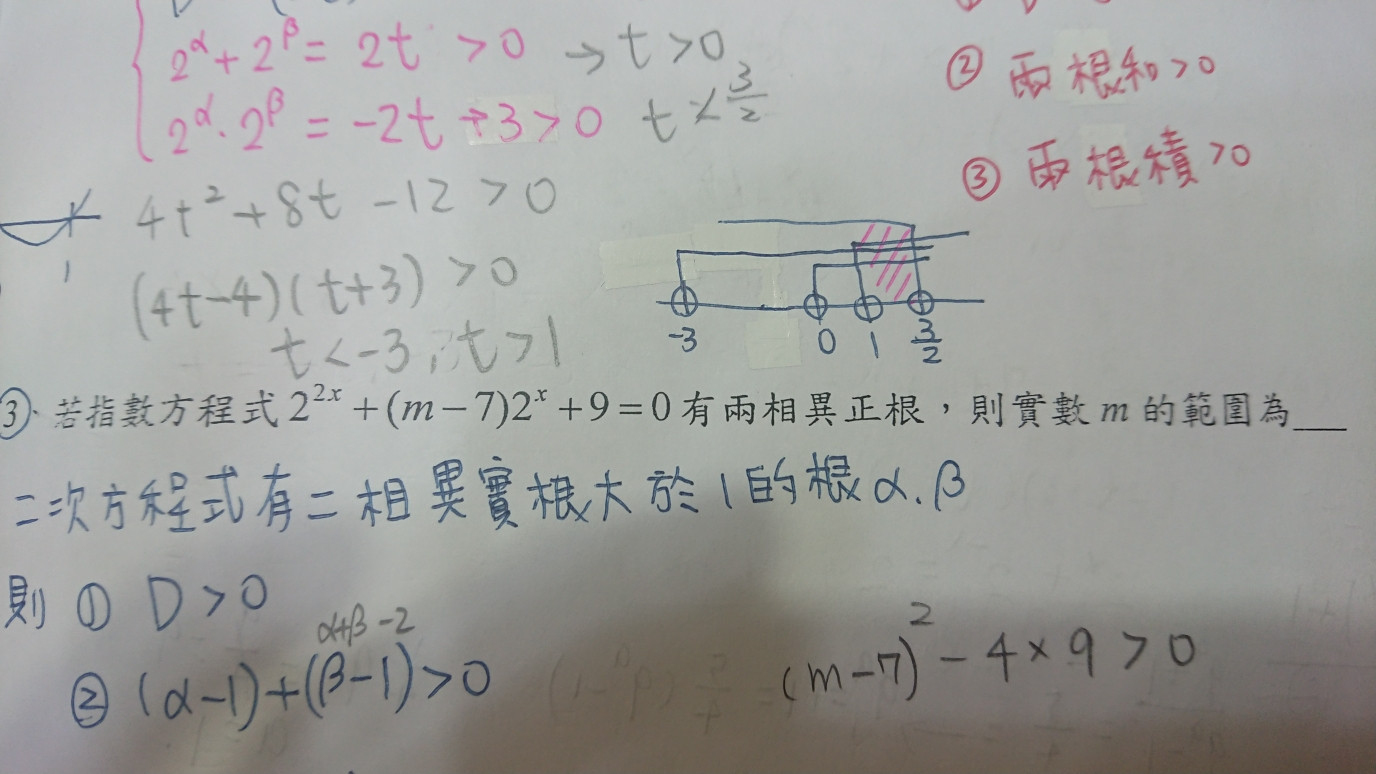 2^α + 2^β = 2t > 0 → t > 0
2^α · 2^β = -2t + 3 > 0 t < 3/2
② 兩根和 > 0
③ 兩根積 > 0
4t² + 8t - 12 > 0
(4t-4)(t+3) > 0
t < -3, t > 1
1
-3 0 1 3/2
③. 若指數方程式 2^{2x} + (m-7)2^x + 9 = 0 有兩相異正根，則實數 m 的範圍為___
二次方程式有二相異實根大於1的根α.β
則 ① D > 0
α+β-2
② (α-1)+(β-1)>0
(m-7)² - 4×9 > 0